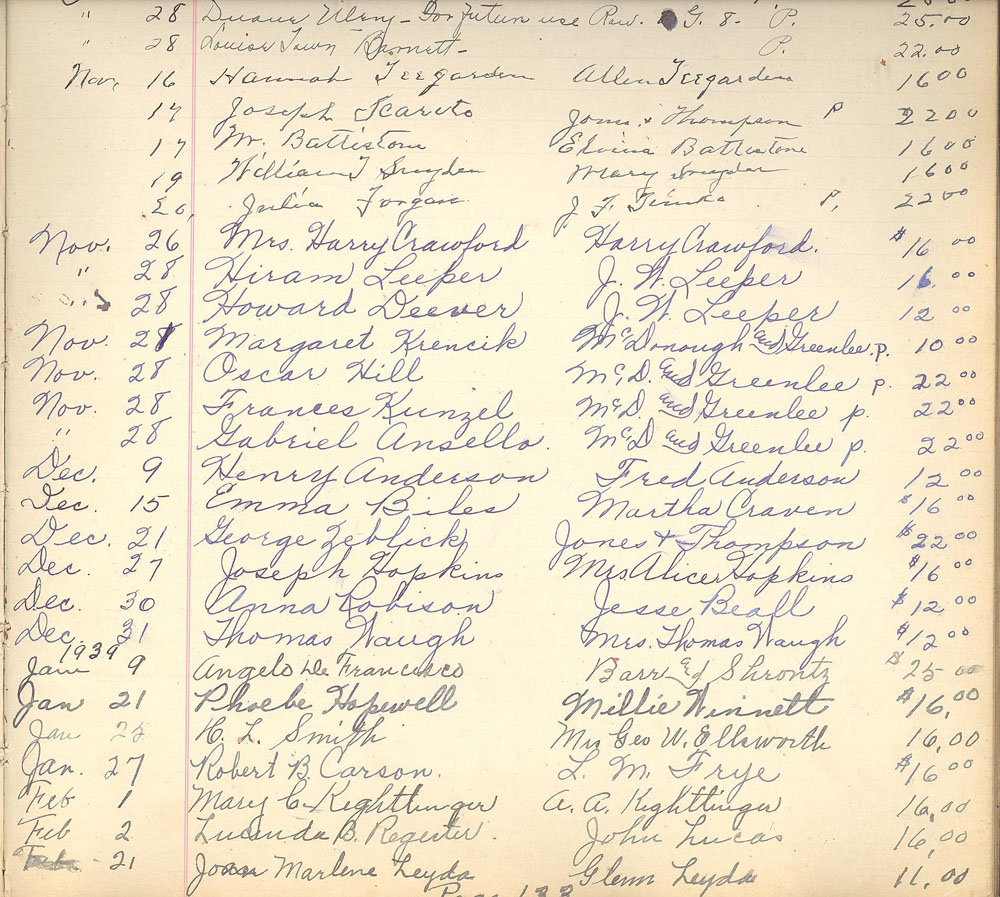 " 28 Duane Ulery - For future use Row. G. 8. P. 25.00
" 28 Louise Town Barnett - P. 22.00
Nov, 16 Hannah Teegarden Allen Teegarden 16 00
17 Joseph Scarito Jones & Thompson P 22 00
17 Mr. Battistone Elvina Battistone 16 00
19 William T Snyder Mary Snyder 16 00
20, Julia Forgan J F P, 22 00
Nov. 26 Mrs. Harry Crawford Harry Crawford. $ 16 00
" 28 Hiram Leeper J. W. Leeper 16 00
" 28 Howard Deever J. W. Leeper 12 00
Nov. 28 Margaret Krencik McDonough and Greenlee. p. 10 00
Nov. 28 Oscar Hill McD. and Greenlee p. 22 00
Nov. 28 Frances Kunzel McD. and Greenlee p. 22 00
" 28 Gabriel Ansello. McD and Greenlee p. 22 00
Dec. 9 Henry Anderson Fred Anderson 12 00
Dec. 15 Emma Biles Martha Craven $16 00
Dec. 21 George Zeblick Jones & Thompson $22 00
Dec. 27 Joseph Hopkins Mrs. Alice Hopkins $16 00
Dec. 30 Anna Robison Jesse Beall $12 00
Dec. 31 Thomas Waugh Mrs. Thomas Waugh $12 00
1939
Jan 9 Angelo De Francisco Barr and Shrontz $25 00
Jan 21 Phoebe Hopewell Millie Winnett $16.00
Jan H. L. Smith Mrs Geo W. Ellsworth 16,00
Jan. 27 Robert B. Carson. L. M. Frye $16 00
Feb 1 Mary C. Kightlinger A. A. Kightlinger 16,00
Feb 2 Lucinda B. Regester. John Lucas 16,00
Feb 21 Joan Marlene Leyda Glenn Leyda 11.00